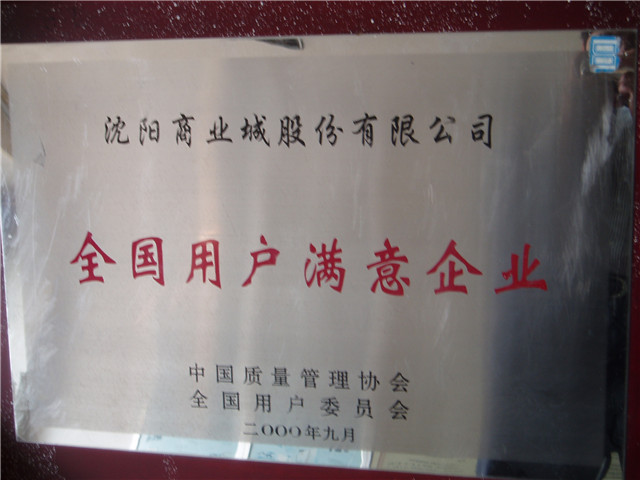 沈阳商业城股份有限公司
全国用户满意企业
中国质量管理协会
全国用户委员会
二000年九月